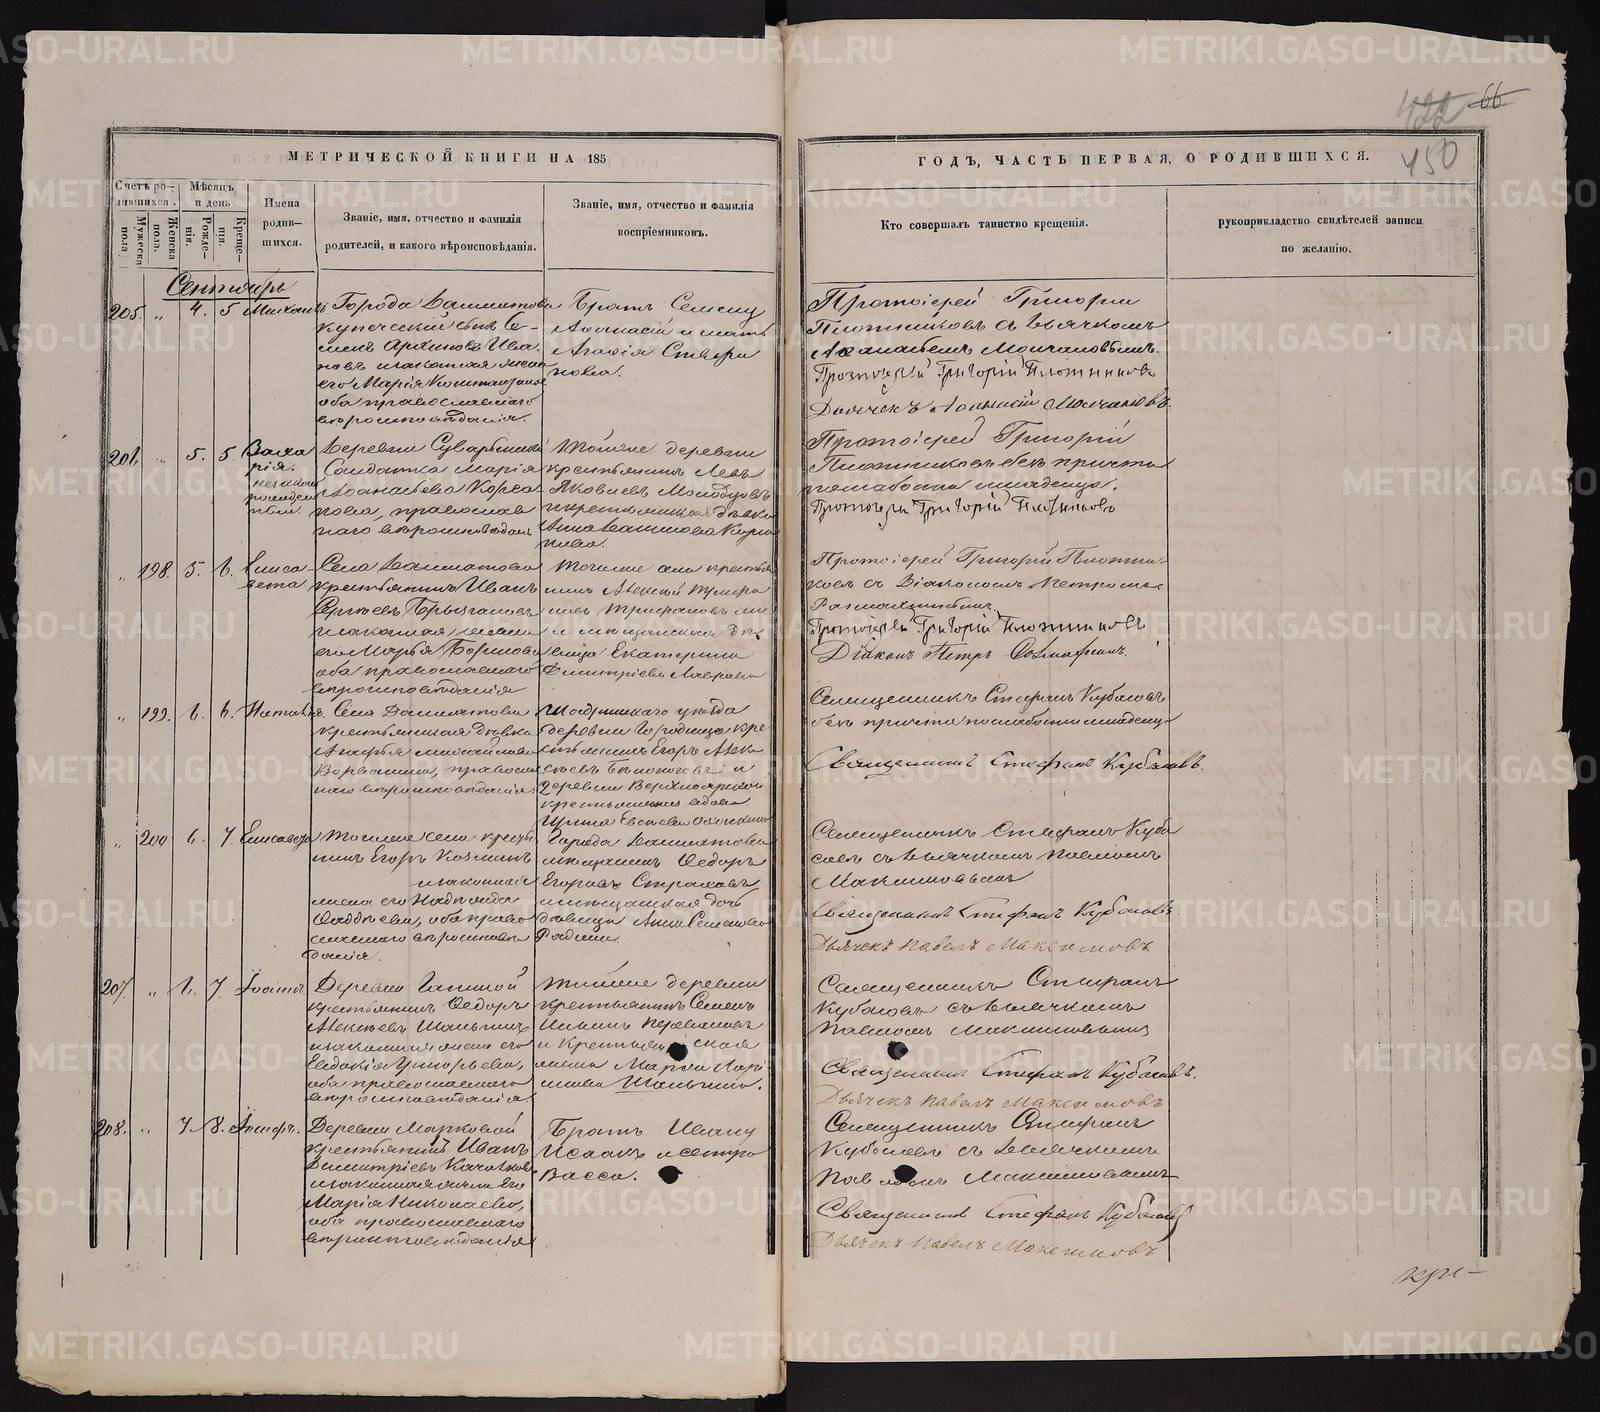 METRIKI.GASO-URAL.RU
66.
422
450
МЕТРИЧЕСКОЙ КНИГИ НА 185
ГОДЪ, ЧАСТЬ ПЕРВАЯ, О РОДИВШИХСЯ.
Счетъ ро-
дившихся.
Мужеска
пола
Женска
пола.
Мѣсяцъ
и день
Рожде-
нія.
Креще-
нія.
Имена
родив-
шихся.
Званіе, имя, отчество и фамилія
родителей, и какого вѣроисповѣданія.
Званіе, имя, отчество и фамилія
воспріемниковъ.
Кто совершалъ таинство крещенія.
рукоприкладство свидѣтелей записи
по желанію.
Сентябрь
205. " 4. 5 Михаилъ
Города Далматова
купеческій сынъ Се-
менъ Ива-
новъ и законная жена
его Марія
оба православнаго
вѣроисповѣданія.
Братъ Семену
Аѳанасій и мать
Агаѳія
Протоіерей Григорій
Плотниковъ съ Дьячкомъ
Аѳанасіемъ Молчановымъ.
Протоіерей Григорій Плотниковъ
Дьячекъ Аѳанасій Молчановъ.
206. " 5. 5. Заха
рія.
незакон
рожден
ный.
Деревни
Солдатка Марія
Аѳанасьева
нова, православ
наго вѣроисповѣдан
Тойже деревни
крестьянинъ Левъ
Яковлевъ
и крестьянская дѣвка
Анна
Протоіерей Григорій
Плотниковъ безъ причта
по слабости младенца.
Протоіерей Григорій Плотниковъ
" 198. 5. 6. Елиса
вета
Села Далматова
крестьянинъ Иванъ
Сергѣевъ
и законная жена
его Марья Борисова
оба православнаго
вѣроисповѣданія
Тогоже села крестья
нинъ Алексѣй
и мѣщанская дѣ
вица Екатерина
Димитріева
Протоіерей Григорій Плотни-
ковъ съ Діакономъ Петромъ
Протоіерей Григорій Плотниковъ
Діаконъ Петръ
" 199. 6. 6. Наталія.
Села Далматова
крестьянская дѣвка
Агафья Михайлова
православ
наго вѣроисповѣданія
Шадринскаго уѣзда
деревни кре
стьянинъ Егоръ Алек
сѣевъ Бѣлоноговъ и
деревни
крестьянская вдова
Ирина
Священникъ Стефанъ Кубасовъ
безъ причта по слабости младенца
Священникъ Стефанъ Кубасовъ
" 200 6. 7. Елисавета
Тогоже села кресть
нинъ Егоръ
и законная
жена его Надежда
Ѳаддѣева, оба право
славнаго вѣроисповѣ
данія.
Города Далматова
мѣщанинъ Ѳедоръ
Егоровъ
мѣщанская дочь
дѣвица Анна
Священникъ Стефанъ Куба
совъ съ Дьячкомъ Павломъ
Максимовымъ
Священникъ Стефанъ Кубасовъ.
Дьячекъ Павелъ Максимовъ.
207. " 6. 7. Іоаннъ
Деревни
крестьянинъ Ѳедоръ
Алексѣевъ
и законная жена его
Евдокія Григорьева,
оба православнаго
вѣроисповѣданія.
Тойже деревни
крестьянинъ Семенъ
Ильинъ
и крестьянская
жена Марья
Священникъ Стефанъ
Кубасовъ съ Дьячкомъ
Павломъ Максимовымъ
Священникъ Стефанъ Кубасовъ.
Дьячекъ Павелъ Максимовъ
208. " 7. 8. Іосифъ.
Деревни Марковой
крестьянинъ Иванъ
Димитріевъ
и законная жена его
Марія Николаева,
оба православнаго
вѣроисповѣданія
Братъ Ивану
Исаакъ и сестра
Васса.
Священникъ Стефанъ
Кубасовъ съ Дьячкомъ
Павломъ Максимовымъ
Священникъ Стефанъ Кубасовъ
Дьячекъ Павелъ Максимовъ